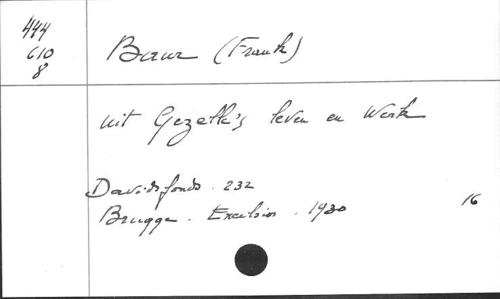 444
610
8
Baur (Frank)
uit Gezelle's leven en Werk
Davidsfonds. 232
Brugge. Excelsior. 1930
16